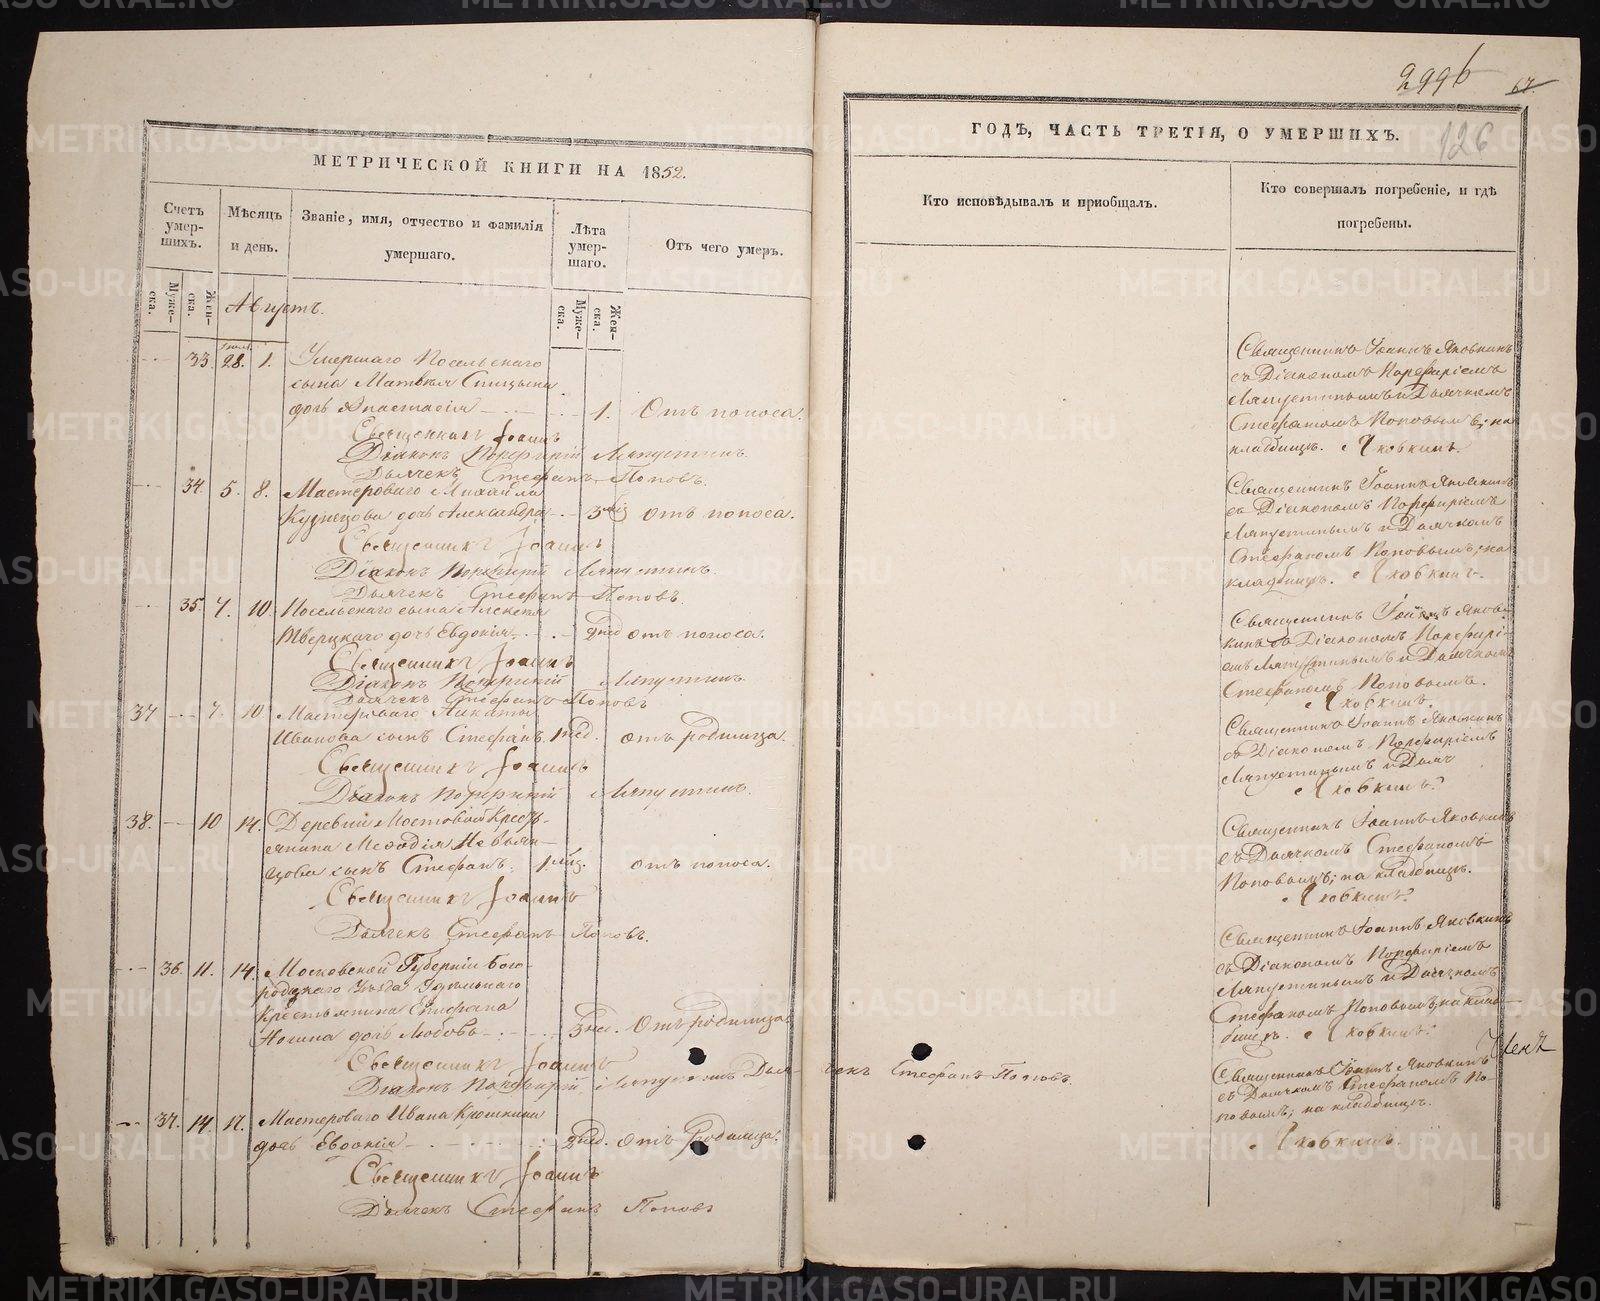 МЕТРИЧЕСКОЙ КНИГИ НА 1852.
Счетъ умер-шихъ.
Мѣсяцъ и день.
Званіе, имя, отчество и фамилія умершаго.
Лѣта умер-шаго.
Отъ чего умеръ.
Муже-ска.
Жен-ска.
Муже-ска.
Жен-ска.
Августъ.
33. 28. 1. Умершаго Посельскаго
сына Матвѣя Спицына
дочь Анастасія 1. Отъ поноса.
Священникъ Іоаннъ
Діаконъ Порфирій Ляпустинъ.
Дьячекъ Стефанъ Поповъ.
34. 5. 8. Мастероваго Михаила
Кузнецова дочь Александра 3 отъ поноса.
Священникъ Іоаннъ
Діаконъ Порфирій Ляпустинъ.
Дьячекъ Стефанъ Поповъ.
35. 7. 10. Посельскаго сына Алексѣя
Тверцкаго дочь Евдокія 2 нед отъ поноса.
Священникъ Іоаннъ
Діаконъ Порфирій Ляпустинъ.
Дьячекъ Стефанъ Поповъ
37 7. 10. Мастероваго Никиты
Иванова сынъ Стефанъ 1 нед. отъ родимца.
Священникъ Іоаннъ
Діаконъ Порфирій Ляпустинъ.
38. 10 14. Деревни Мостовой Кресть-
янина Меѳодія Невьян-
цова сынъ Стефанъ. 1. мѣс. отъ поноса.
Священникъ Іоаннъ
Дьячекъ Стефанъ Поповъ.
36. 11. 14. Московской Губерніи Бого-
родскаго Уѣзда Удѣльнаго
Крестьянина Стефана
дочь Любовь 3 нед. Отъ родимца.
Священникъ Іоаннъ
Діаконъ Порфирій Ляпустинъ Дья-чекъ Стефанъ Поповъ.
37. 14. 17. Мастероваго Ивана Крошкина
дочь Евдокія 2 нед. отъ родимца.
Священникъ Іоаннъ
Дьячекъ Стефанъ Поповъ
299б
67.
126
ГОДЪ, ЧАСТЬ ТРЕТІЯ, О УМЕРШИХЪ.
Кто исповѣдывалъ и пріобщалъ.
Кто совершалъ погребеніе, и гдѣ
погребены.
Священникъ Іоаннъ Яковкинъ
съ Діакономъ Порфиріемъ
Ляпустинымъ и Дьячкомъ
Стефаномъ Поповымъ; на
кладбищѣ. Яковкинъ.
Священникъ Іоаннъ Яковкинъ
съ Діакономъ Порфиріемъ
Ляпустинымъ и Дьячкомъ
Стефаномъ Поповымъ; на
кладбищѣ. Яковкинъ.
Священникъ Іоаннъ Яков-
кинъ съ Діакономъ Порфирі-
емъ Ляпустинымъ и Дьячкомъ
Стефаномъ Поповымъ.
Яковкинъ.
Священникъ Іоаннъ Яковкинъ
съ Діакономъ Порфиріемъ
Ляпустинымъ и Дьяч
Яковкинъ.
Священникъ Іоаннъ Яковкинъ
съ Дьячкомъ Стефаномъ
Поповымъ; на кладбищѣ.
Яковкинъ.
Священникъ Іоаннъ Яковкинъ
съ Діакономъ Порфиріемъ
Ляпустинымъ и Дьячкомъ
Стефаномъ Поповымъ, на клад-
бищѣ. Яковкинъ.
Священникъ Іоаннъ Яковкинъ
съ Дьячкомъ Стефаномъ По-
повымъ; на кладбищѣ.
Яковкинъ.
METRIKI.GASO-URAL.RU